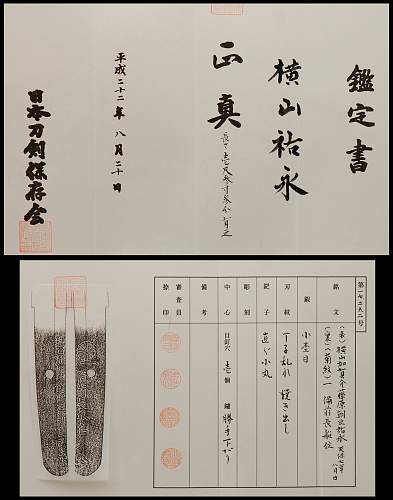 鑑定書
横山祐永
正真
長さ壱尺参寸参分有之
平成二十二年八月二十日
日本刀剣保存会
銘文
(表)横山加賀介藤原朝臣祐永 天保七年八月日
(裏)(菊紋)一 備前長船住
鍛
小杢目
刃紋
丁子乱れ 焼き出し
鋩子
直ぐ小丸
彫刻
中心
目釘穴 壱個 鑢 勝手下がり
備考
審査員
捺印